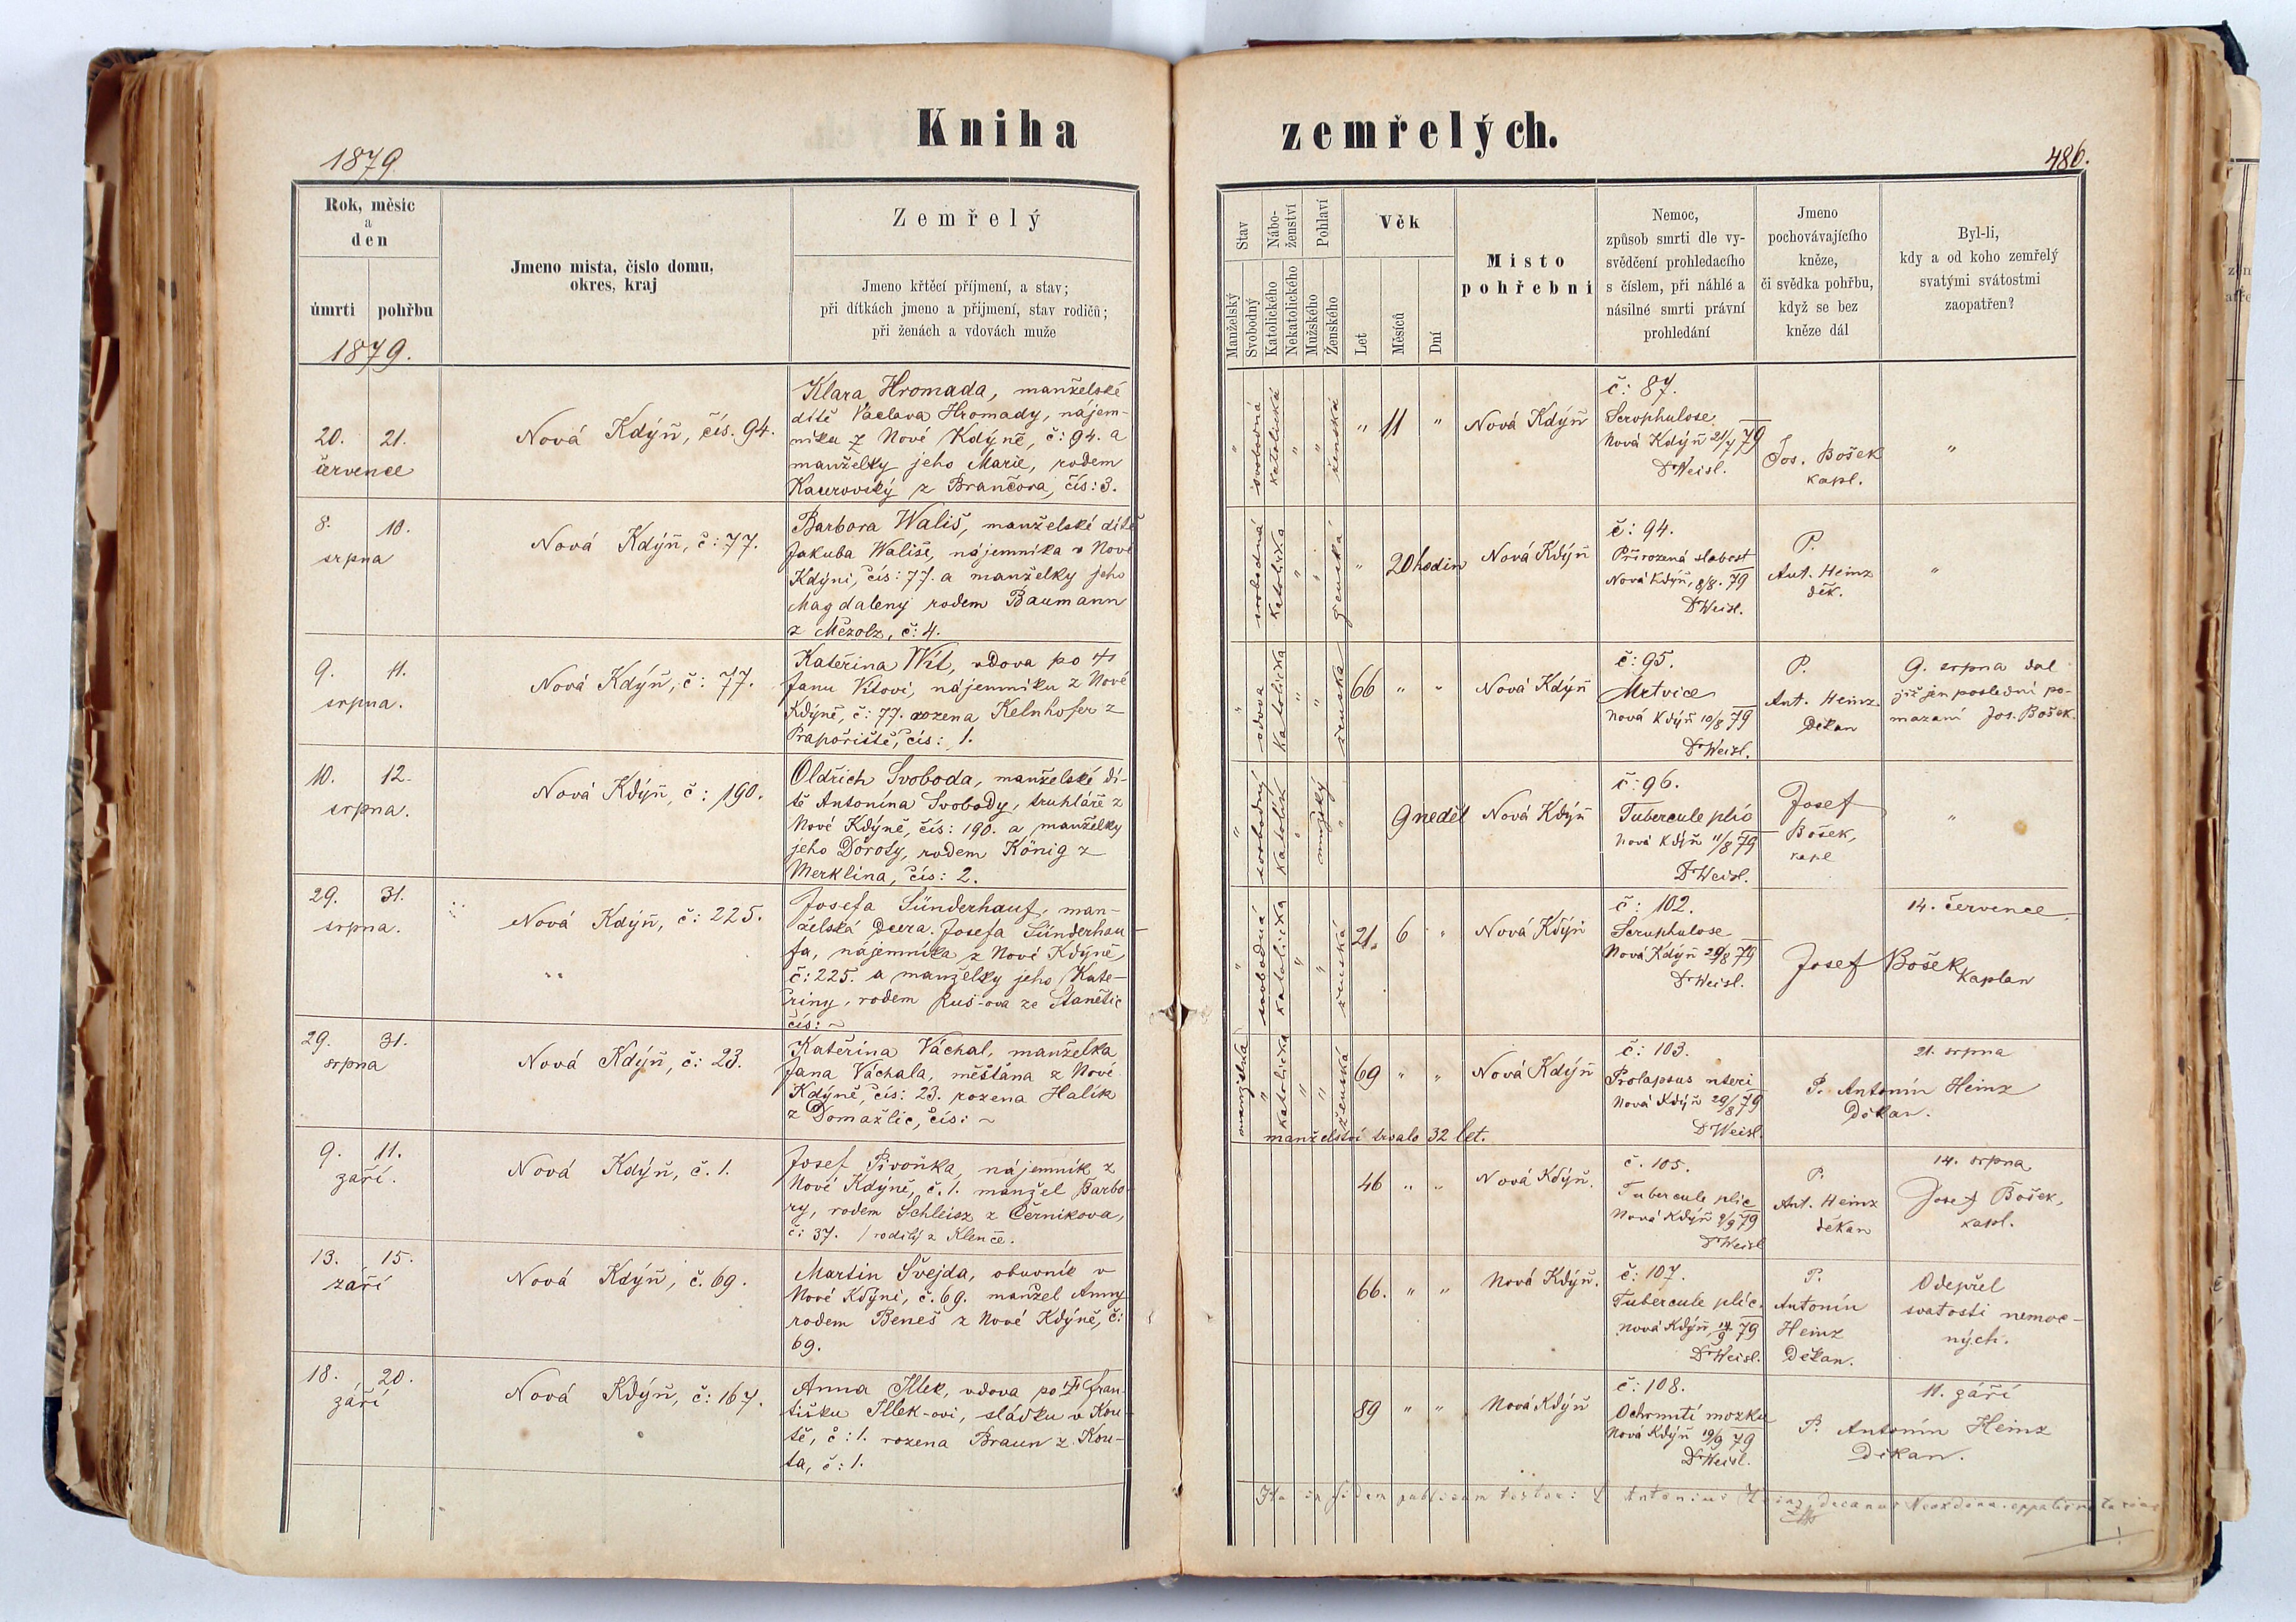 Kniha
zemřelých.
1879
486.
Rok, měsíc
a
den
úmrti
pohřbu
1879.
Jmeno mista, čislo domu,
okres, kraj
Zemřelý
Jmeno křtěcí příjmení, a stav;
při dítkách jmeno a přijmení, stav rodičů;
při ženách a vdovách muže
Stav
Manželský
Svobodný
Nábo-
ženství
Katolického
Nekatolického
Pohlaví
Mužského
Ženského
Věk
Let
Měsíců
Dní
Misto
pohřebni
Nemoc,
způsob smrti dle vy-
svědčení prohledacího
s číslem, při náhlé a
násilné smrti právní
prohledání
Jmeno
pochovávajícího
kněze,
či svědka pohřbu,
když se bez
kněze dál
Byl-li,
kdy a od koho zemřelý
svatými svátostmi
zaopatřen?
20. 21.
července
Nová Kdýň, čís. 94.
Klara Hromada, manželské
dítě Václava Hromady, nájem-
níka z Nové Kdýně, č: 94. a
manželky jeho Marie, rodem
Kaurovský z Brančova, čís: 3.
" svobodná katolická " " ženská
" 11 "
Nová Kdýň
č: 87.
Scrophulose
Nová Kdýň 21/7 79
Dr Weisl.
Jos. Bošek
kapl.
"
8. 10.
srpna
Nová Kdýň, č: 77.
Barbora Wališ, manželské dítě
Jakuba Wališe, nájemníka v Nové
Kdýni, čís: 77. a manželky jeho
Magdaleny rodem Baumann
z Mezolz, č: 4.
svobodná katolička " " ženská
" 20 hodin
Nová Kdýň
č: 94.
Přirozená slabost
Nová Kdýň, 8/8. 79
Dr Weisl.
P.
Ant. Heinz
děk.
"
9. 11.
srpna.
Nová Kdýň, č: 77.
Kateřina Wít, vdova po †
Janu Vítovi, nájemníku z Nové
Kdýně, č: 77. rozena Kelnhofer z
Prapořiště, čís: 1.
" vdova katolička " " ženská
66 " "
Nová Kdýň
č: 95.
Mrtvice
Nová Kdýň 10/8 79
Dr Weisl.
P.
Ant. Heinz
Děkan
9. srpna dal
již jen poslední po-
mazaní Jos. Bošek.
10. 12.
srpna.
Nová Kdýň, č: 190.
Oldřich Svoboda, manželské dí-
tě Antonína Svobody, truhláře z
Nové Kdýně, čís: 190. a manželky
jeho Doroty, rodem König z
Merklina, čís: 2.
" svobodný katolík " mužský "
9 neděl
Nová Kdýň
č: 96.
Tubercule plic
Nová Kdýň 11/8 79
Dr Weisl.
Josef
Bošek,
kapl
"
29. 31.
srpna.
Nová Kdýň, č: 225.
Josefa Sünderhauf, man-
želská dcera Josefa Sünderhau-
fa, nájemníka z Nové Kdýně,
č: 225. a manželky jeho Kate-
řiny, rodem Ruš-ova ze Stanětic
čís: ~
" svobodná katolička " " ženská
21. 6 "
Nová Kdýň
č: 102.
Scrophulose
Nová Kdýň 29/8 79
Dr Weisl.
14. července
Josef Bošek
Kaplan
29. 31.
srpna
Nová Kdýň, č: 23.
Kateřina Váchal, manželka
Jana Váchala, měšťana z Nové
Kdýně, čís: 23. rozena Halík
z Domažlic, čís: ~
manželská " katolička " " ženská
69 " "
manželství trvalo 32 let.
Nová Kdýň
č: 103.
Prolapsus uteri
Nová Kdýň 29/8 79
Dr Weisl.
21. srpna
P. Antonín Heinz
Děkan.
9. 11.
září.
Nová Kdýň, č. 1.
Josef Pivoňka, nájemník z
Nové Kdýně, č. 1. manžel Barbo-
ry, rodem Schleisz z Černikova,
č: 37. / rodilý z Klenče.
46 " "
Nová Kdýň.
č. 105.
Tubercule plic
Nová Kdýň 9/9 79
Dr Weisl
P.
Ant. Heinz
děkan
14. srpna
Josef Bošek,
kapl.
13. 15.
září
Nová Kdýň, č. 69.
Martin Švejda, obuvník v
Nové Kdýni, č. 69. manžel Anny
rodem Beneš z Nové Kdýně, č:
69.
66. " "
Nová Kdýň.
č: 107.
Tubercule plic.
Nová Kdýň 14/9 79
Dr Weisl.
P.
Antonín
Heinz
Děkan.
Odepřel
svatosti nemoc-
ných.
18. 20.
září
Nová Kdýň, č: 167.
Anna Illek, vdova po † Fran-
tišku Illek-ovi, sládku v Kou-
tě, č: 1. rozena Braun z Kou-
ta, č: 1.
89 " "
Nová Kdýň
č: 108.
Ochrnutí mozku
Nová Kdýň 19/9 79
Dr Weisl.
11. září
P. Antonín Heinz
Děkan.
Ita in fidem publicam testor: Antonius Heinz, decanus